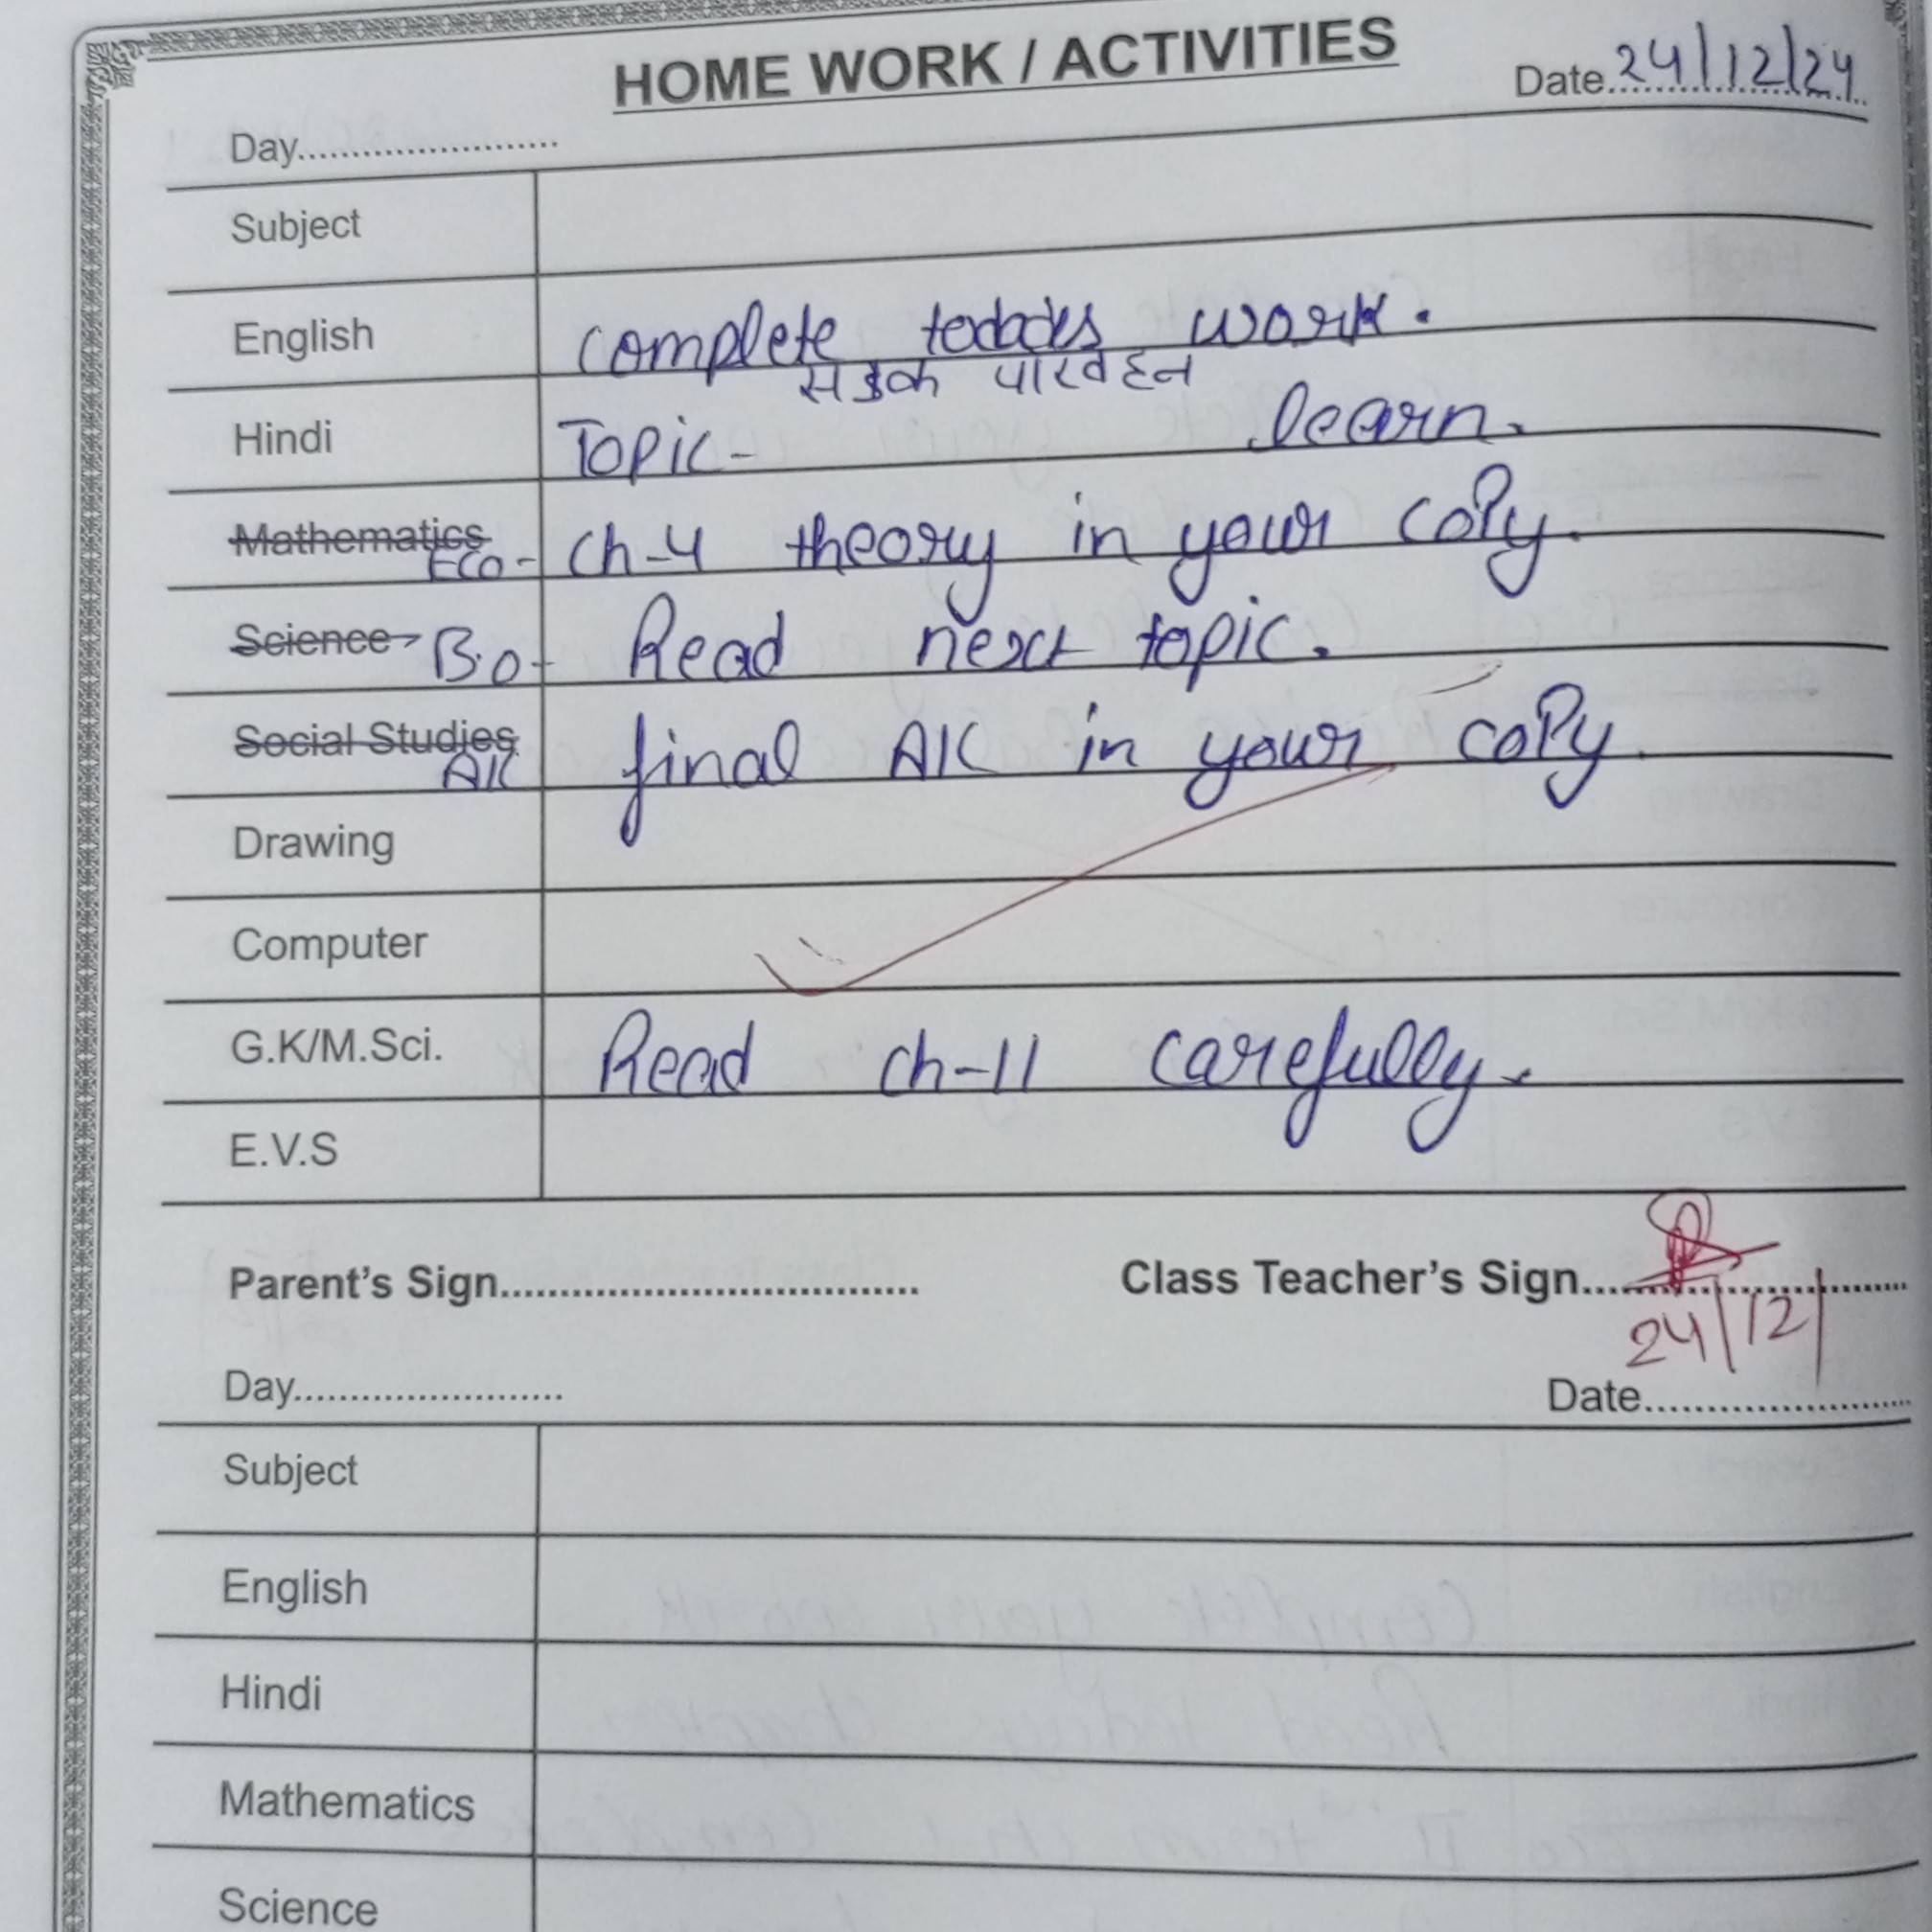 HOME WORK / ACTIVITIES
Date 24/12/24
Day
Subject
English complete todads work.
सड़क परिवहन
Hindi Topic- learn.
Mathematics Eco- Ch-4 theory in your copy.
Science B.O- Read next topic.
Social Studies AK final AK in your copy.
Drawing
Computer
G.K/M.Sci. Read ch-11 carefully.
E.V.S
Parent's Sign Class Teacher's Sign
24/12/
Day Date
Subject
English
Hindi
Mathematics
Science